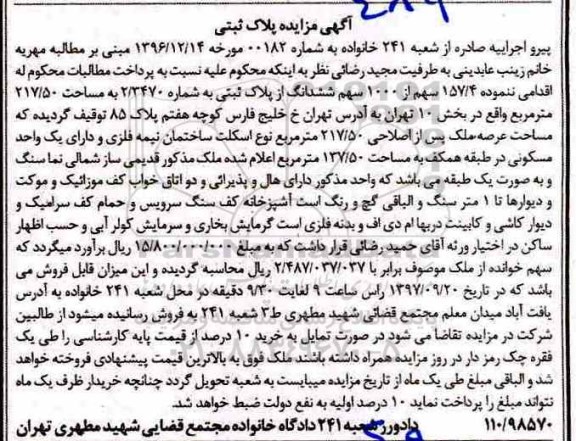 آگهی مزایده پلاک ثبتی
پیرو اجراییه صادره از شعبه ۲۴۱ خانواده به شماره ۰۰۱۸۲ مورخه ۱۳۹۶/۱۲/۱۴ مبنی بر مطالبه مهریه
خانم زینب عابدینی به طرفیت مجید رضائی نظر به اینکه محکوم علیه نسبت به پرداخت مطالبات محکوم له
اقدامی ننموده ۱۵۷/۴ سهم از ۱۰۰۰ سهم ششدانگ از پلاک ثبتی به شماره ۲/۳۴۷۰ به مساحت ۲۱۷/۵۰
مترمربع واقع در بخش ۱۰ تهران به آدرس تهران خ خلیج فارس کوچه هفتم پلاک ۸۵ توقیف گردیده که
مساحت عرصه ملک پس از اصلاحی ۲۱۷/۵۰ مترمربع نوع اسکلت ساختمان نیمه فلزی و دارای یک واحد
مسکونی در طبقه همکف به مساحت ۱۳۷/۵۰ مترمربع اعلام شده ملک مذکور قدیمی ساز شمالی نما سنگ
و به صورت یک طبقه می باشد که واحد مذکور دارای هال و پذیرائی و دو اتاق خواب کف موزائیک و موکت
و دیوارها تا ۱ متر سنگ و الباقی گچ و رنگ است آشپزخانه کف سنگ سرویس و حمام کف سرامیک و
دیوار کاشی و کابینت دربها ام دی اف و بدنه فلزی است گرمایش بخاری و سرمایش کولر آبی و حسب اظهار
ساکن در اختیار ورثه آقای حمید رضائی قرار داشت که به مبلغ ۱۵/۸۰۰/۰۰۰/۰۰۰ ریال برآورد میگردد که
سهم خوانده از ملک موصوف برابر با ۲/۴۸۷/۰۳۷/۰۳۷ ریال محاسبه گردیده و این میزان قابل فروش می
باشد که در تاریخ ۱۳۹۷/۰۹/۲۰ راس ساعت ۹ لغایت ۹/۳۰ دقیقه در محل شعبه ۲۴۱ خانواده به آدرس
یافت آباد میدان معلم مجتمع قضائی شهید مطهری ط۳ شعبه ۲۴۱ به فروش رسانیده میشود از طالبین
شرکت در مزایده تقاضا می شود در صورت تمایل به خرید ۱۰ درصد از قیمت پایه کارشناسی را طی یک
فقره چک رمز دار در روز مزایده همراه داشته باشند ملک فوق به بالاترین قیمت پیشنهادی فروخته خواهد
شد و الباقی مبلغ طی یک ماه از تاریخ مزایده میبایست به شعبه تحویل گردد چنانچه خریدار ظرف یک ماه
نتواند مبلغ را پرداخت نماید ۱۰ درصد اولیه به نفع دولت ضبط خواهد شد.
۱۱۰/۹۸۵۷۰ دادورز شعبه ۲۴۱ دادگاه خانواده مجتمع قضایی شهید مطهری تهران